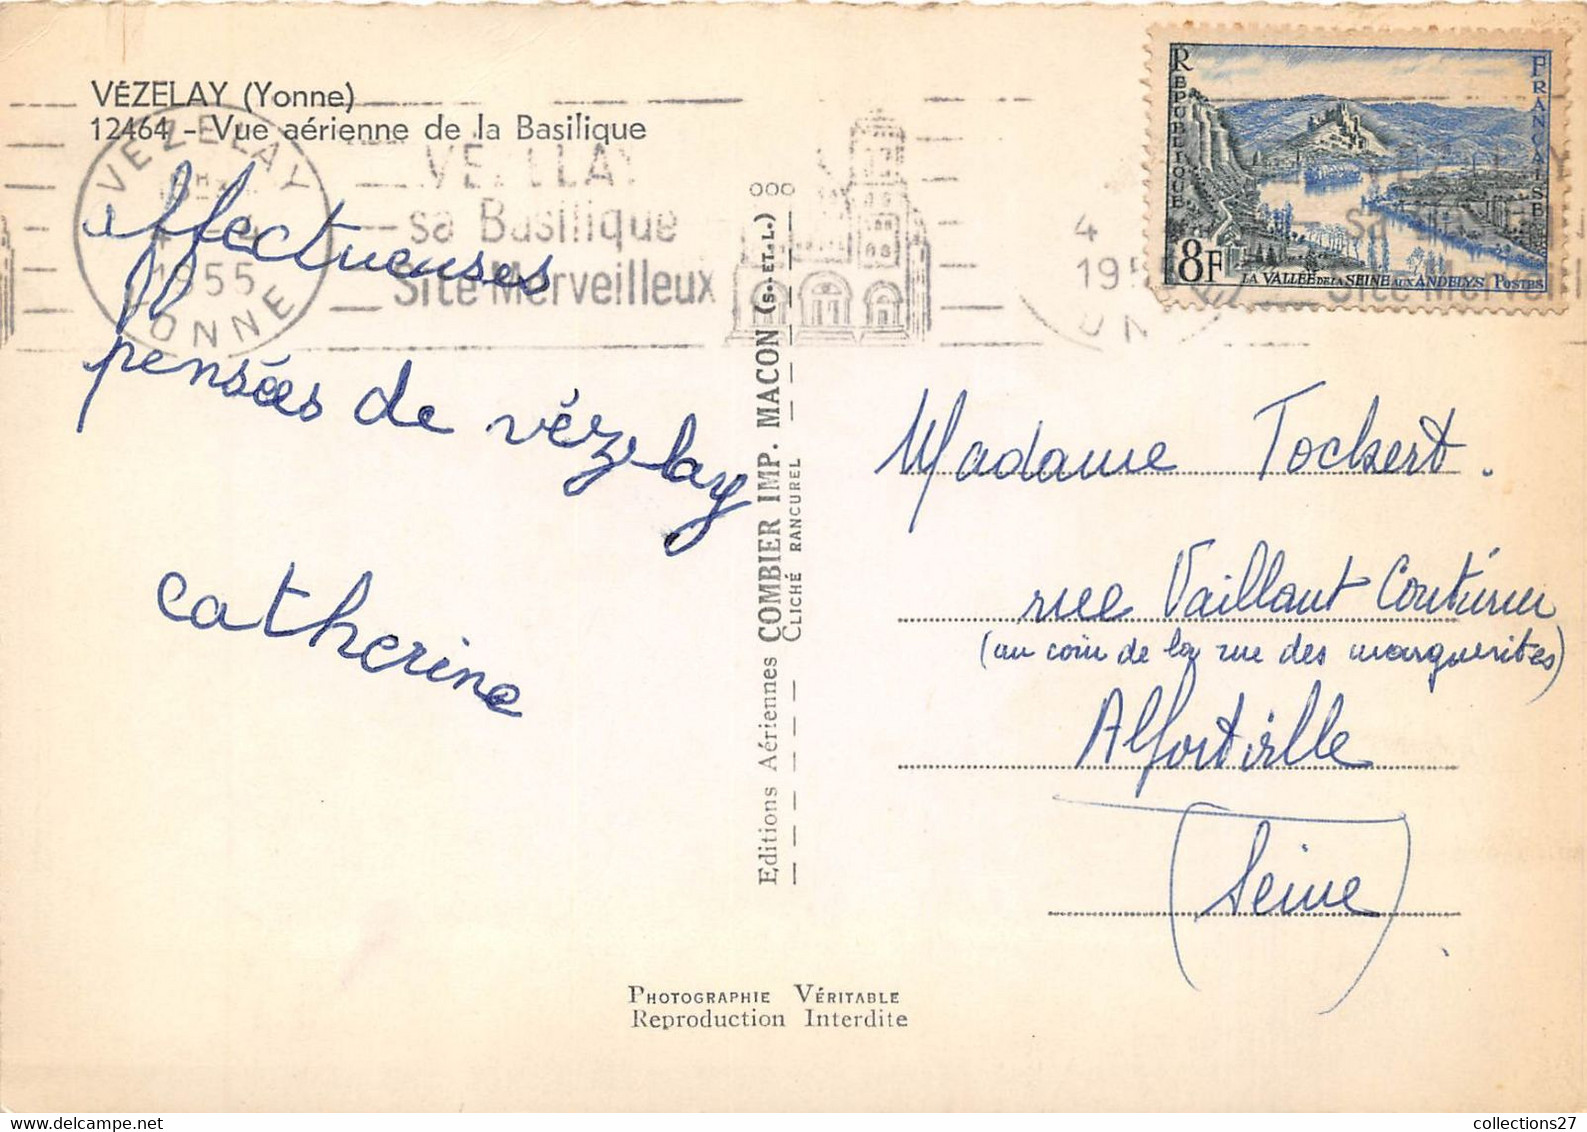 VÉZELAY (Yonne)
12464 - Vue aérienne de la Basilique
VEZELAY
1955
YONNE
VEZELAY
sa Basilique
Site Merveilleux
REPUBLIQUE
FRANÇAISE
8F
LA VALLÉE DE LA SEINE AUX ANDELYS POSTES
4
195
sa
Site Merveil
affectueuses
pensées de vézelay
catherine
Editions Aériennes COMBIER IMP. MACON (S.-ET-L.)
CLICHÉ RANCUREL
Madame Tockert.
rue Vaillant Couturier
(au coin de la rue des marguerites)
Alfortville
(Seine)
PHOTOGRAPHIE VÉRITABLE
Reproduction Interdite
collections27